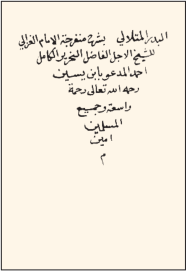 البدر المتلالي بشرح منفرجة الامام الغزالي
للشيخ الاجل الفاضل النحرير الكامل
احمد المدعو بابن يسين
رحمه الله تعالى رحمة
واسعة وجميع
المسلمين
امين
م